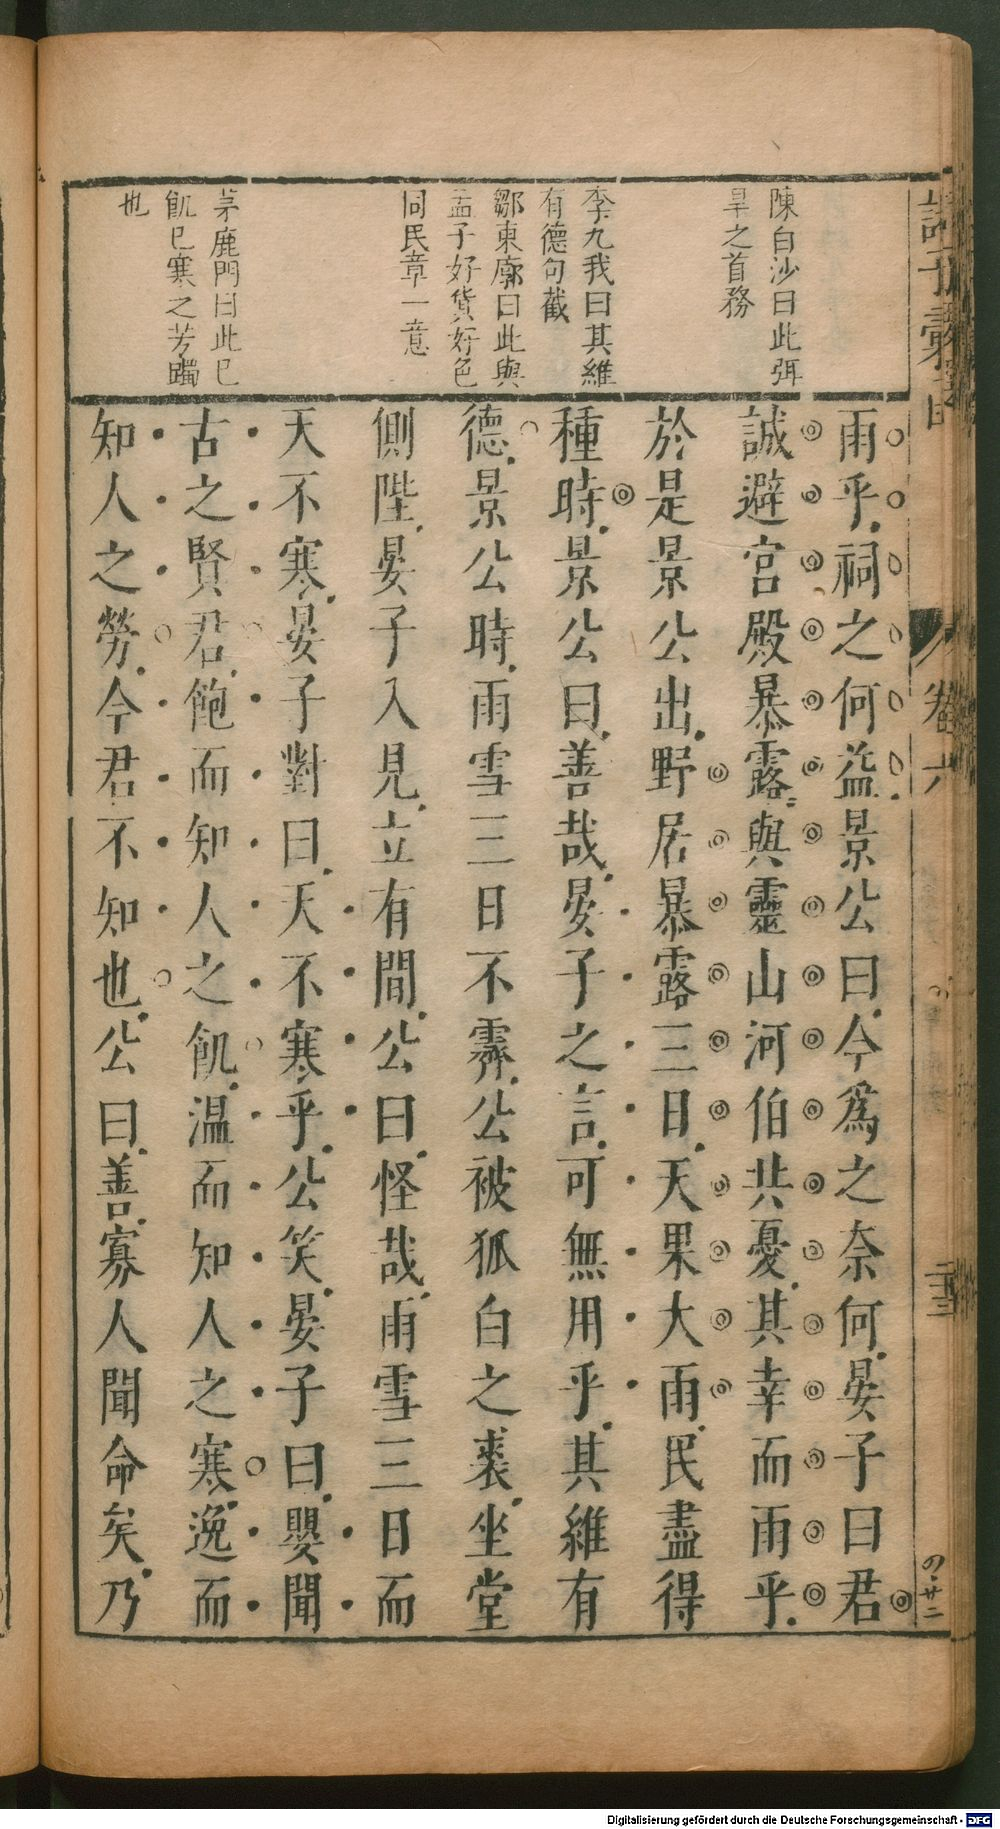 陳白沙曰此弭
旱之首務
李九我曰其維
有德句截
鄒東廓曰此與
孟子好貨好色
同民章一意
茅鹿門曰此已
飢已寒之芳躅
也
雨乎祠之何益景公曰今爲之奈何晏子曰君
誠避宮殿暴露與靈山河伯共憂其幸而雨乎
於是景公出野居暴露三日天果大雨民盡得
種時景公曰善哉晏子之言可無用乎其維有
德景公時雨雪三日不霽公被狐白之裘坐堂
側陛晏子入見立有間公曰怪哉雨雪三日而
天不寒晏子對曰天不寒乎公笑晏子曰嬰聞
古之賢君飽而知人之飢温而知人之寒逸而
知人之勞今君不知也公曰善寡人聞命矣乃
卷六
Digitalisierung gefördert durch die Deutsche Forschungsgemeinschaft - DFG